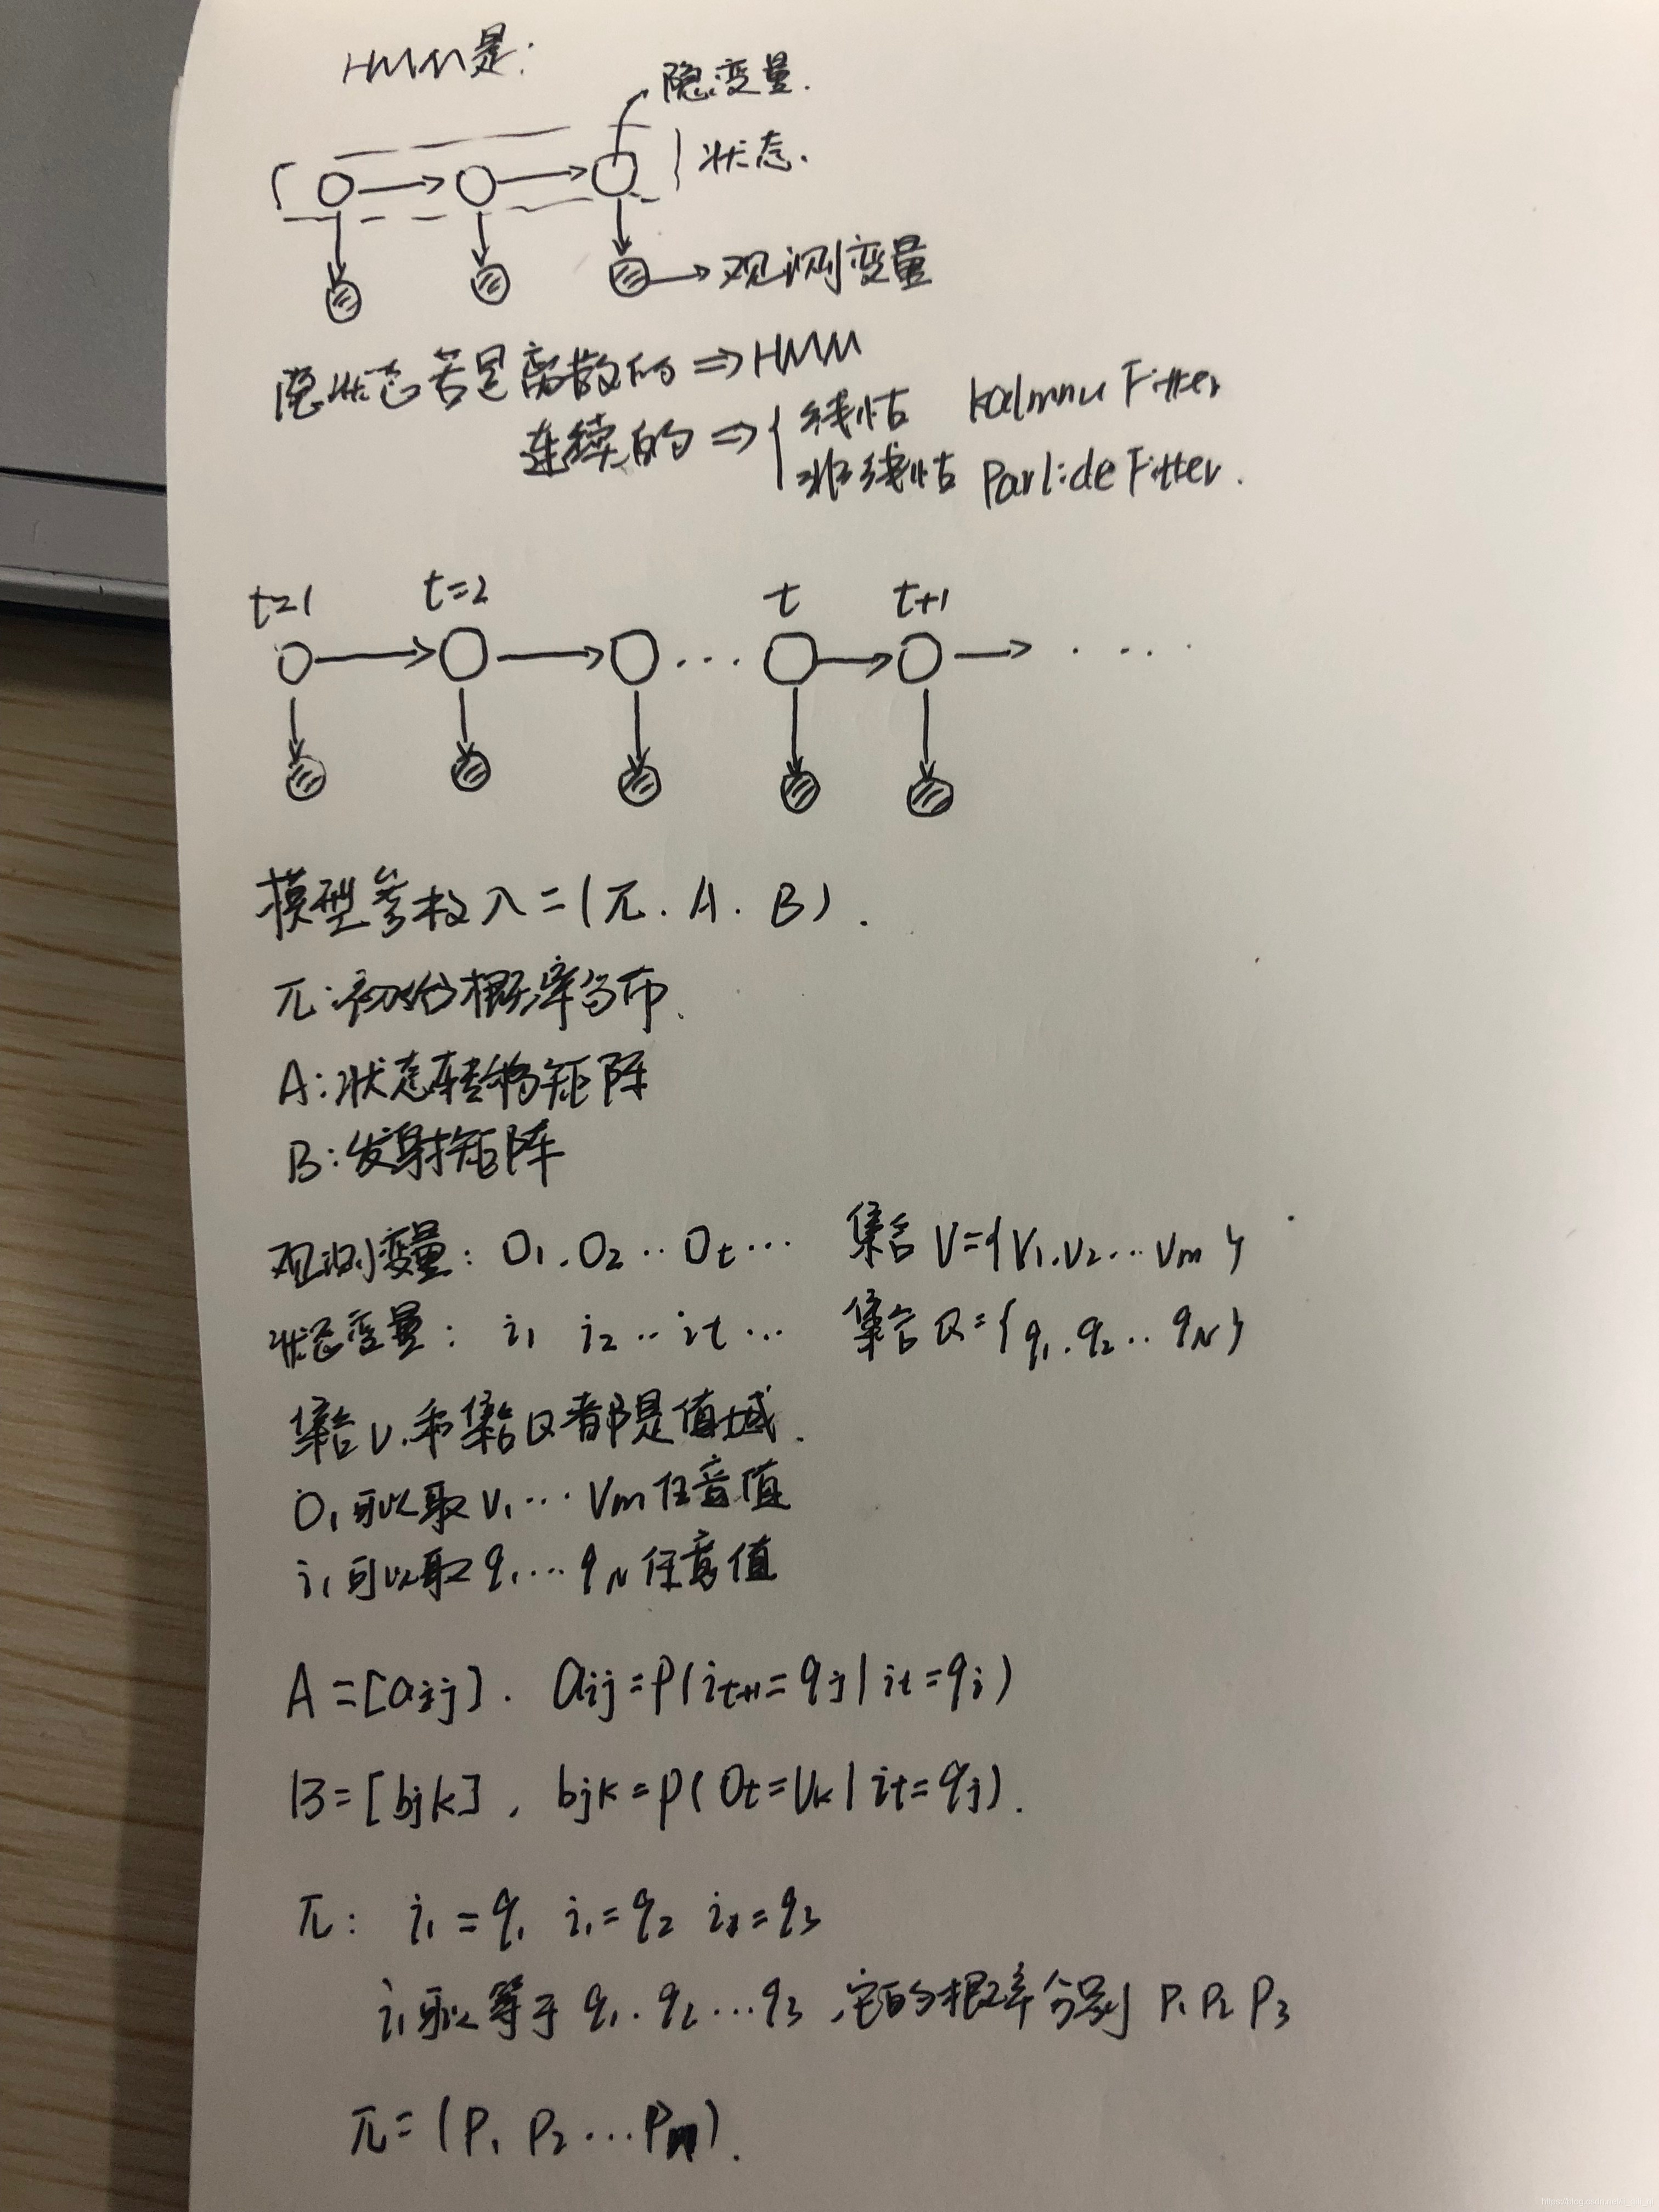 HMM是:
隐变量.
}状态.
→观测变量
隐状态若是离散的 ⇒ HMM
连续的 ⇒ { 线性 kalmnu Fitter
非线性 Parlicle Fitter.
t=1 t=2 t t+1
... · ...
模型参数 λ=(π. A. B).
π:初始概率分布.
A:状态转移矩阵
B:发射矩阵
观测变量: O₁.O₂‥Oₜ… 集合 V={V₁.V₂…Vm}
状态变量: i₁ i₂‥iₜ… 集合Q={q₁.q₂‥qN}
集合V.和集合Q都是值域.
O₁可以取V₁…Vm任意值
i₁可以取q₁…qN任意值
A=[aij]. aij=P(iₜ₊₁=qj|iₜ=qi)
B=[bjk], bjk=P(Oₜ=Vk|iₜ=qj).
π: i₁=q₁ i₁=q₂ i₁=q₃
i₁可以等于q₁.q₂…q₃,它的概率分别P₁P₂P₃
π=(P₁ P₂…Pm).